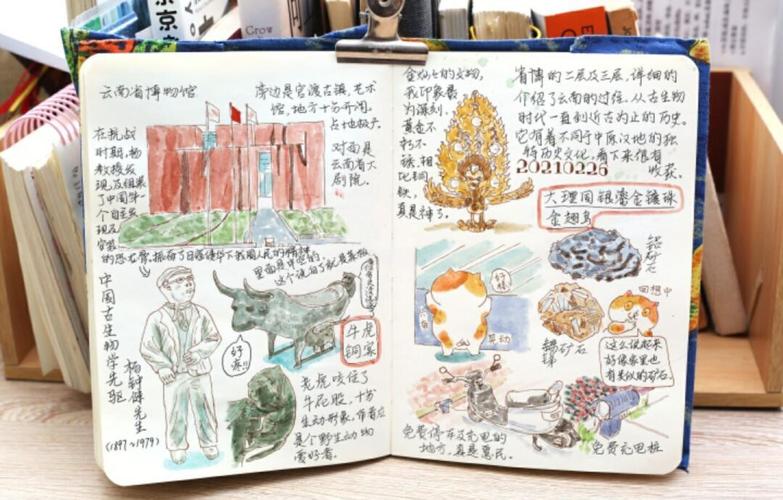 京东
京
Grow
云南省博物馆
旁边是官渡古镇,艺术
馆,地方十分开阔,
占地极广
对面是
云南省大
剧院。
在抗战
时期,杨
教授发
现及组装
了中国第一
个自主发
现及
安装
的恐龙
里面是中空的
牛虎
铜案
好疼!!
老虎咬住了
牛屁股,十分
生动形象,作者应
是个野生动物
爱好者。
中国古生物学先驱
杨钟健先生
(1897~1979)
金灿灿的文物,
我印象最
为深刻。
黄金不
朽不
锈,相
比铜
铁,
真是神了。
省博的二层及三层,详细的
介绍了云南的过往。从古生物
时代一直到近古为止的历史。
它有着不同于中原汉地的独
特历史文化,看下来很有
收获。
20210226
大理国银鎏金镶珠
金翅鸟
铝矿石
锡矿石
回想中
这么说起来
好像家里也
有类似的矿石。
免费停车及充电的
地方,真是惠民。
免费充电桩